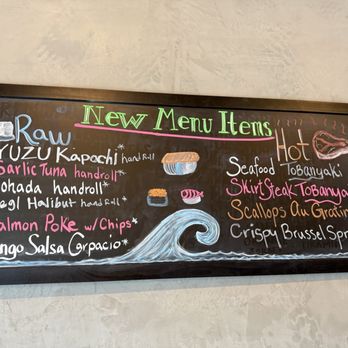 New Menu Items
Raw
YUZU Kapachi hand Roll*
Garlic Tuna handroll*
Kohada handroll*
Regl Halibut hand Roll*
Salmon Poke w/Chips*
ngo Salsa Carpacio*
Hot
Seafood Tobanyaki
Skirt Steak Tobanya
Scallops Au Gratin
Crispy Brussel Spr